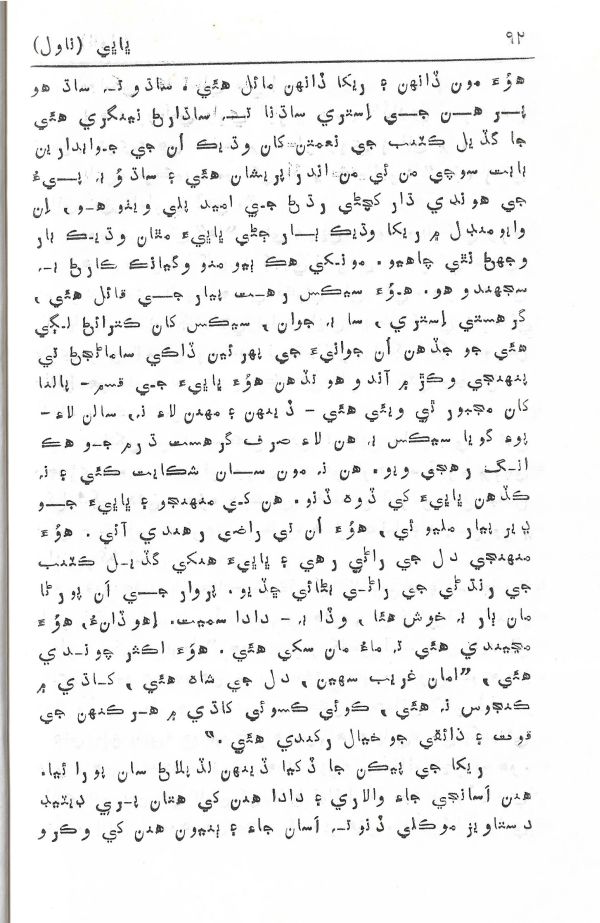 ۹۲
پاپي (ناول)
هوُءَ مون ڏانهن ۽ ريکا ڏانهن مائل هئي، شاڌو تہ ساڌ هو
پر هن جي اِستري ساڌنا تہ ساڌارڻ نينگري هئي
جا گڏيل ڪٽنب جي نعمتن کان وڌيڪ اُن جي جوابدارين
بابت سوچي من ئي من اندر پريشان هئي ۽ ساڌوُ بہ پيءُ
جي هوندي ڌار کچڻي رڌڻ جي اميد پلي ويٺو هو، اِن
وايو منڊل ۾ ريکا وڌيڪ ٻار ڄڻي ڀاڀيءَ مٿان وڌيڪ بار
وجهڻ نٿي چاهيو. مونکي هڪ ٻيو منو وگيانڪ ڪارڻ بہ
سجهندو هو. هوُءَ سيڪس رهت پيار جي قائل هئي،
گرهستي اِستري، سا بہ جوان، سيڪس کان ڪترائڻ لڳي
هئي جو جڏهن اُن جوانيءَ جي پهرئين ڏاڪي ساماڻجڻ تي
پنهنجي وڪڙ ۾ آندو هو تڏهن هوُءَ ڀاڀيءَ جي قسم - پالنا
کان مجبور ٿي ويئي هئي - ڏينهن ۽ مهنن لاءِ نہ، سالن لاءِ -
پوءِ گويا سيڪس بہ هن لاءِ صرف گرهست ڌرم جو هڪ
انگ رهجي ويو. هن نہ مون سان شڪايت ڪئي ۽ نہ
ڪڏهن ڀاڀيءَ کي ڏوهہ ڏنو. هن کي منهنجو ۽ ڀاڀيءَ جو
ڀرپور پيار مليو ئي، هوُءَ اُن تي راضي رهندي آئي. هوُءَ
منهنجي دل جي راڻي رهي ۽ ڀاڀيءَ هنکي گڏيل ڪٽنب
جي رنڌڻي جي راڻي بڻائي ڇڏيو. پروار جي اَن پورڻا
مان ٻار بہ خوش هئا، وڏا بہ - دادا سميت. اِهو ڏانءُ، هوُءَ
مڃيندي هئي تہ ماءُ مان سکي هئي. هوُءَ اڪثر چوندي
هئي، ”امان غريب سهين، دل جي شاھ هئي، کاڌي ۾
ڪنجوس نہ هئي، ڪوئي ڪسوئي کاڌي ۾ هر ڪنهن جي
قوت ۽ ذائقي جو خيال رکندي هئي.“
ريکا جي پيڪن جا ڏکيا ڏينهن لڏپلاڻ سان پورا ٿيا.
هنن اَسانجي جاءِ والاري ۽ دادا هنن کي هتان پري ڊيٽيڊ
دستاويز موڪلي ڏنو تہ اَسان جاءِ ۽ ٻنيون هنن کي وڪرو